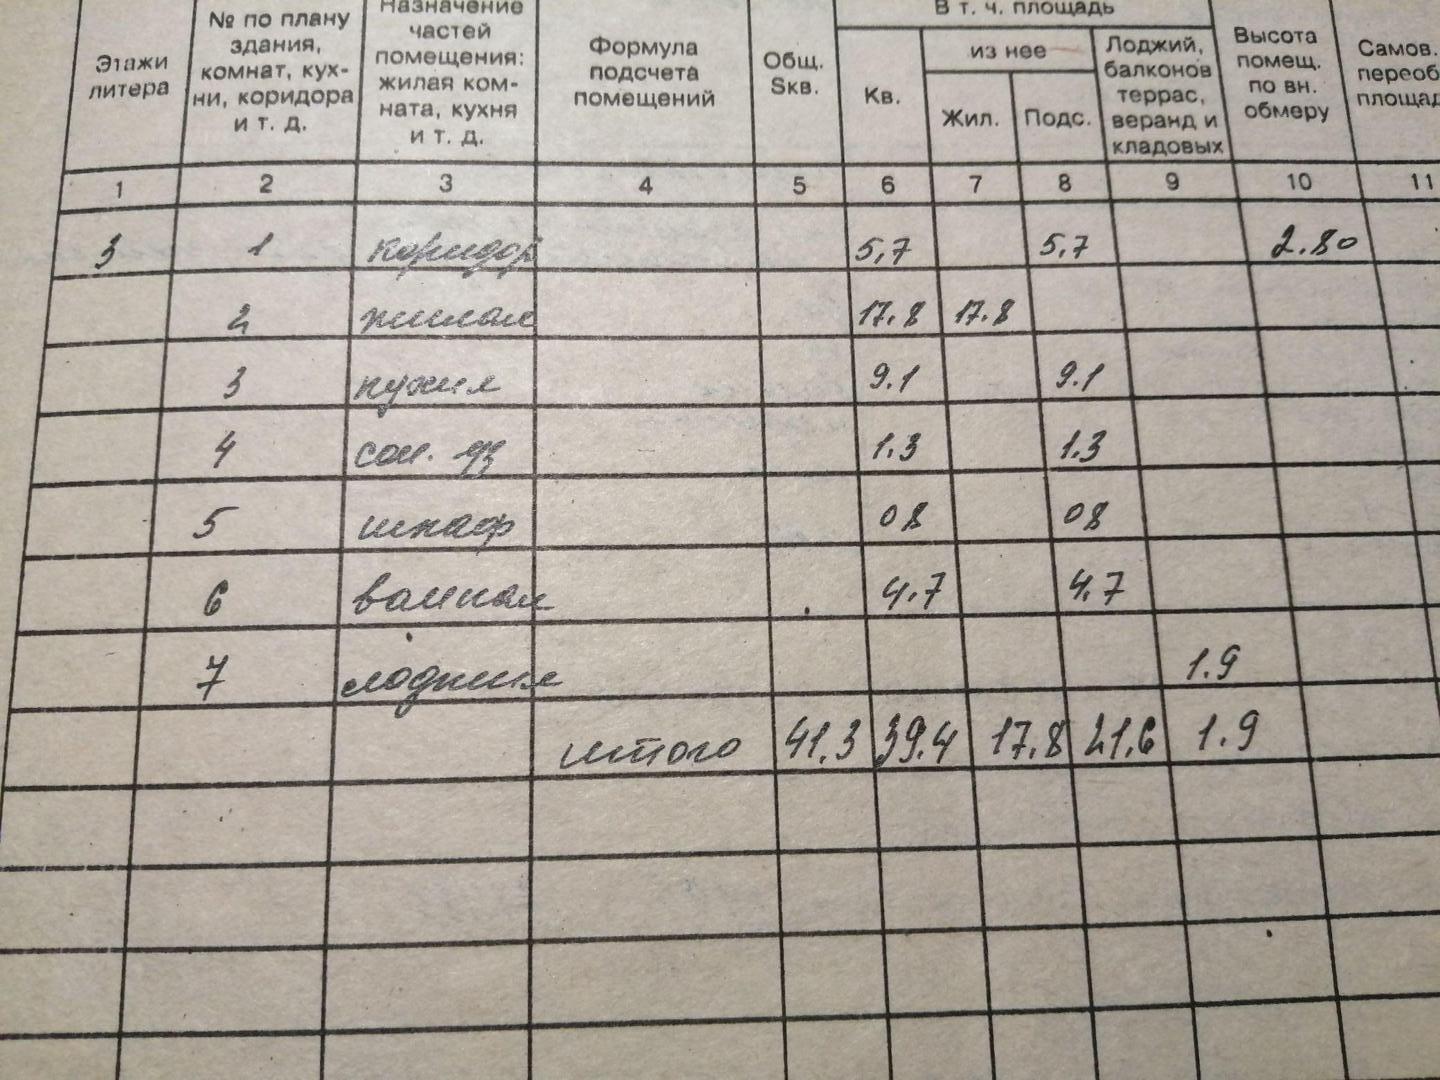 Этажи литера | № по плану здания, комнат, кухни, коридора и т. д. | Назначение частей помещения: жилая комната, кухня и т. д. | Формула подсчета помещений | Общ. Sкв. | В т. ч. площадь | Кв. | из нее | Жил. | Подс. | Лоджий, балконов террас, веранд и кладовых | Высота помещ. по вн. обмеру | Самов. переоб площад
1 2 3 4 5 6 7 8 9 10 11
3 1 коридор 5,7 5,7 2.80
2 жилая 17.8 17.8
3 кухня 9.1 9.1
4 сан. уз 1.3 1.3
5 шкаф 08 08
6 ванная 4.7 4.7
7 лоджия 1.9
итого 41.3 39.4 17.8 21.6 1.9